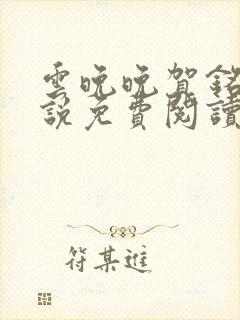 雲晚晚賀銘
說免費閱讀
符某進